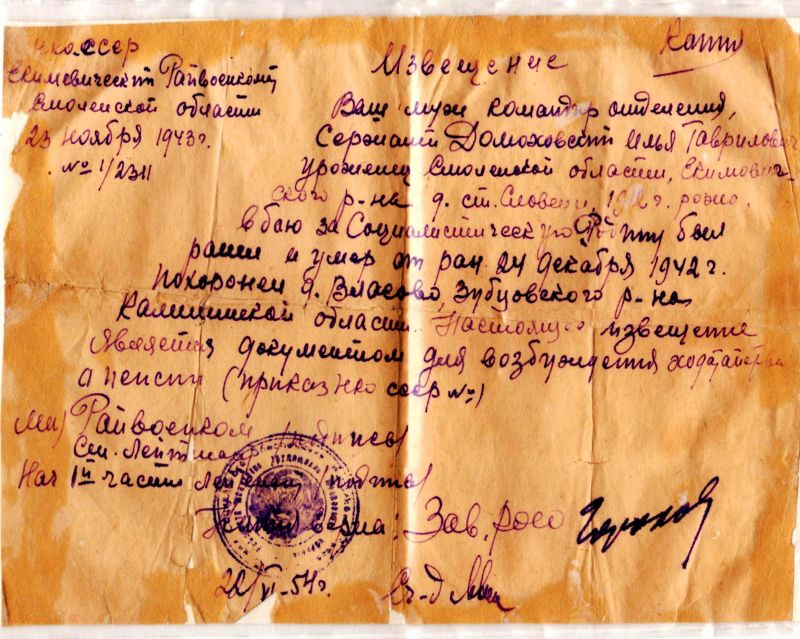 НКО СССР
Копия
Извещение
Екимовический Райвоенкомат
Смоленской области
23 ноября 1943 г.
№ 1/2311
Ваш муж командир отделения,
Сержант Домоховский Илья Гаврилович
уроженец Смоленской области, Екимович-
ского р-на д. ст. Словени, рожд.
в бою за Социалистическую Родину был
ранен и умер от ран 24 декабря 1942 г.
похоронен д. Власово, Зубцовского р-на
Калининской области. Настоящее извещение
является документом для возбуждения ходатайства
о пенсии (приказ НКО СССР №)
МП Райвоенком /подпись/
Ст. Лейтенант
Нач 1й части /подпись/
верна: Зав. РОСО
20/VI-54г.